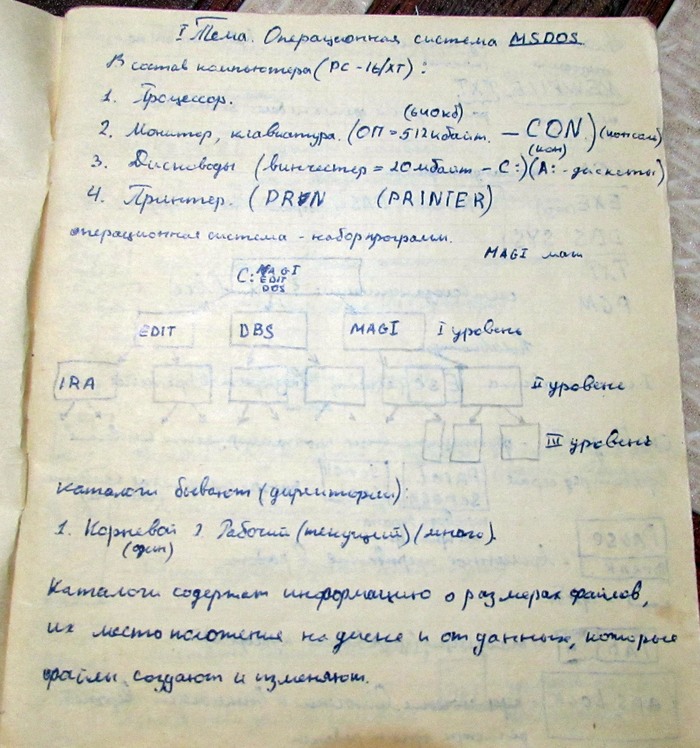 I Тема. Операционная система MSDOS.
В состав компьютера (PC-16/XT):
1. Процессор.
(640кб)
2. Монитор, клавиатура. (ОП = 512 кбайт. – CON) (консоль)
(кон)
3. Дисководы (винчестер = 20 мбайт – С:) (А: - дискеты)
4. Принтер. (PRN (PRINTER)
операционная система - набор программ.
MAGI
C: MAGI
EDIT
DOS
EDIT DBS MAGI I уровень
IRA II уровень
III уровень
Каталоги бывают (директории):
1. Корневой 2. Рабочий (текущий) (много).
(один)
Каталоги содержат информацию о размерах файлов,
их место положение на диске и от данных, которые
файлы создают и изменяют.